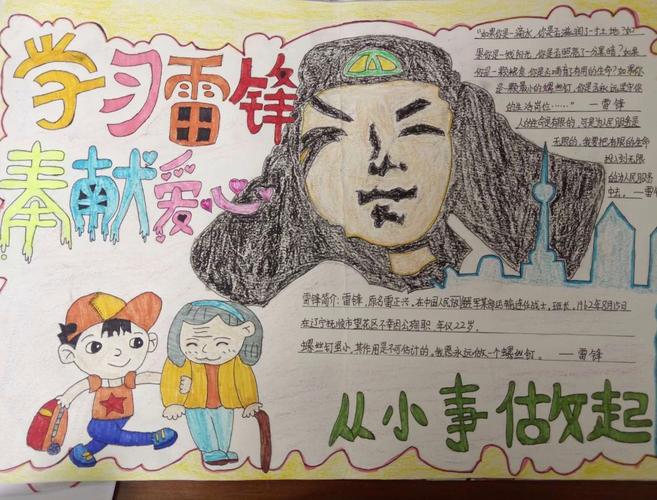 学习雷锋
奉献爱心
"如果你是一滴水，你是否滋润了一寸土地？如
果你是一线阳光，你是否照亮了一分黑暗？如果
你是一颗粮食，你是否哺育了有用的生命？如果你
是一颗最小的螺丝钉，你是否永远坚守你
的生活岗位……" —雷锋
人的生命是有限的，可是为人民服务是
无限的，我要把有限的生命
投入到无限
的为人民服务
中去。 —雷
雷锋简介：雷锋，原名雷正兴，在中国人民
战士，班长，1962年8月15日
在辽宁抚顺市望花区不幸因公殉职 年仅22岁。
螺丝钉虽小，其作用是不可估计的，我愿永远做一个螺丝钉。 —雷锋
从小事做起